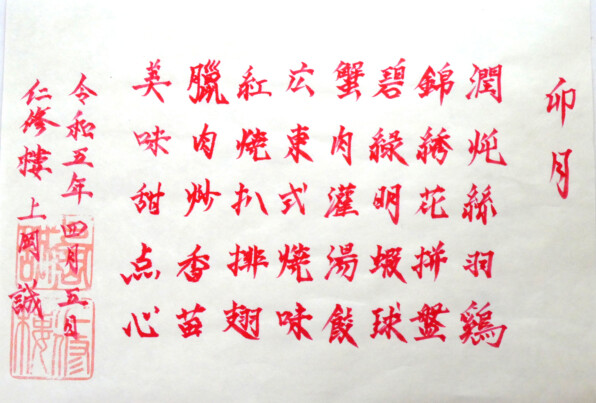 卯月
潤炖絲羽鶏
錦綉花拼盤
碧緑明蝦球
蟹肉灌湯餃
広東式焼味
紅焼扒排翅
臘肉炒香苗
美味甜点心
令和五年四月五日
仁修樓上岡誠